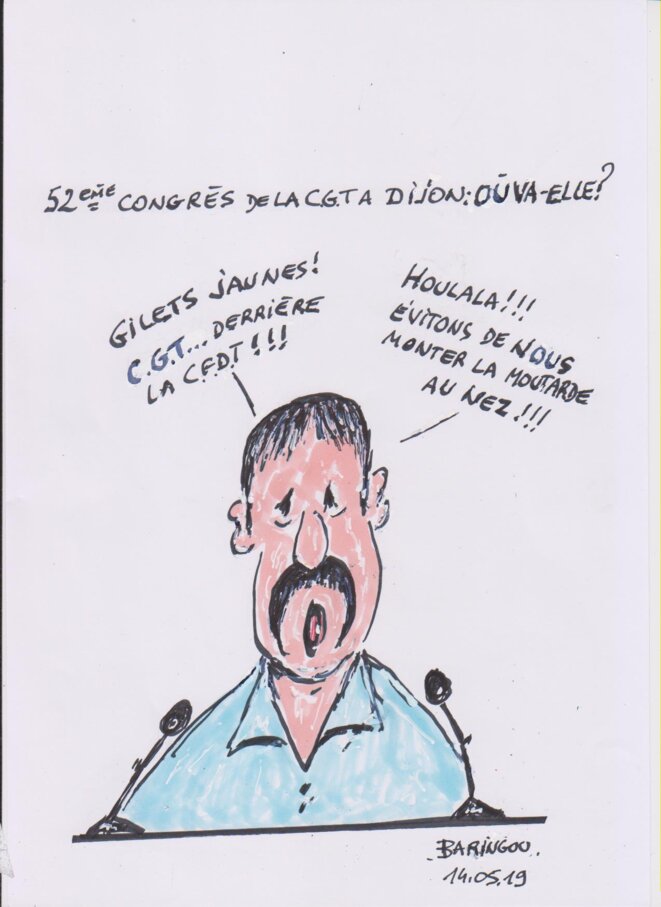 52ème CONGRÈS DE LA C.G.T A DIJON: OÙ VA-ELLE?
GILETS JAUNES!
C.G.T... DERRIÈRE
LA CFDT!!!
HOULALA!!!
ÉVITONS DE NOUS
MONTER LA MOUTARDE
AU NEZ!!!
BARINGOU.
14.05.19